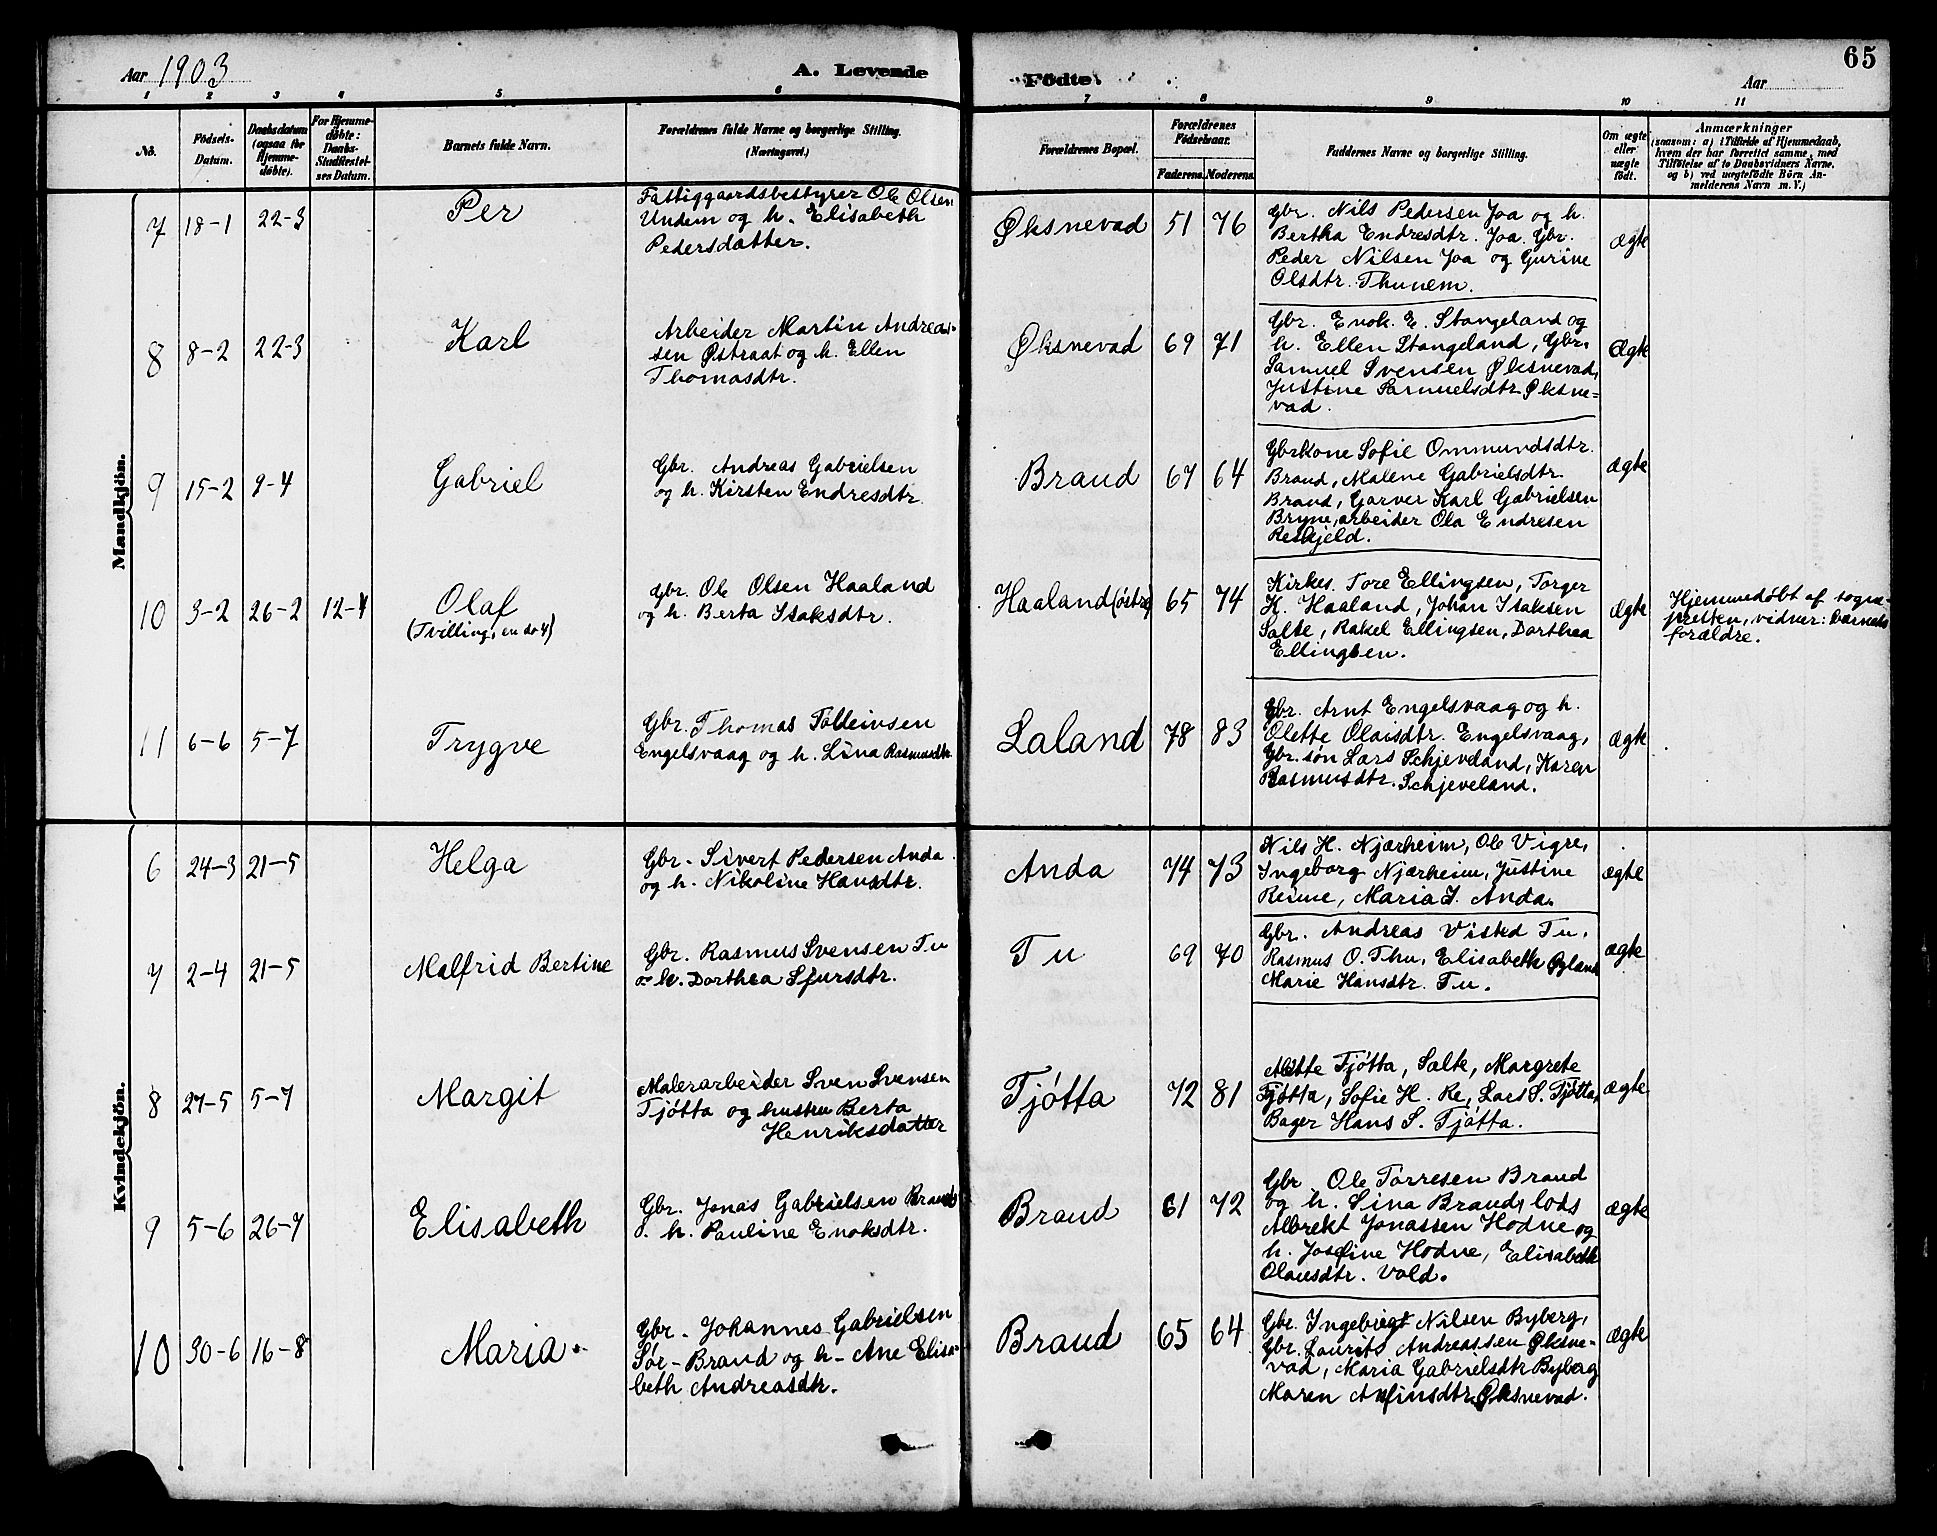 65
Aar 1903
A. Levende
Födte.
Aar
1 2 3 4 5 6 7 8 9 10 11
No.
Födsels-
Datum.
Daabsdatum
(ogsaa for
Hjemme-
døbte).
For Hjemme-
døbte:
Daabs-
Stadfæstel-
ses Datum.
Barnets fulde Navn.
Forældrenes fulde Navne og borgerlige Stilling.
(Næringsvei.)
Forældrenes Bopæl.
Forældrenes
Födselsaar.
Faderens. Moderens.
Faddernes Navne og borgerlige Stilling.
Om ægte
eller
uægte
født.
Anmærkninger
(saasom: a) i Tilfælde af Hjemmedaab,
hvem der har forrettet samme, med
Tilføielse af to Daabsvidners Navne,
og b) ved uægtefødte Börn An-
melderens Navn m. V.)
Mandkjön.
7 18-1 22-3 Per
Fattiggaardsbestyrer Ole Olsen
Undem og h. Elisabeth
Pedersdatter.
Øksnevad 51 76
Gbr. Nils Pedersen Joa og h.
Bertha Endresdtr. Joa. Gbr.
Peder Nilsen Joa og Gurine
Olsdtr. Thunem.
ægte
8 8-2 22-3 Karl
Arbeider Martin Andrea-
sen Østraat og h. Ellen
Thomasdtr.
Øksnevad 69 71
Gbr. Enok. E. Stangeland og
h. Ellen Stangeland, Gbr.
Samuel Svensen Øksnevad,
Justine Samuelsdtr Øksne=
vad.
Ægte
9 15-2 9-4 Gabriel
Gbr. Andreas Gabrielsen
og h. Kirsten Endresdtr.
Braud 67 64
Gbrkone Sofie Ommundsdtr.
Braud, Malene Gabrielsdtr
Braud, Garver Karl Gabrielsen
Bryne, arbeider Ola Endresen
Reskjeld.
ægte
10 3-2 26-2 12-4 Olaf
(Tvilling, en do4)
Gbr. Ole Olsen Haaland
og h. Berta Isaksdtr.
Haaland (østre) 65 74
Kirkes. Tore Ellingsen, Torger
K. Haaland, Johan Isaksen
Salte, Rakel Ellingsen, Dorthea
Ellingsen.
Ægte
Hjemmedøbt af sogne-
presten, vidner: Barnets
forældre.
11 6-6 5-7 Trygve
Gbr. Thomas Tolleivsen
Engelsvaag og h. Lina Rasmusdtr.
Laland 78 83
Gbr. Arnt Engelsvaag og h.
Olette Olaisdtr. Engelsvaag,
Gbr.søn Lars Schjeveland, Karen
Rasmusdtr. Schjeveland.
ægte
Kvindekjön.
6 24-3 21-5 Helga
Gbr. Sivert Pedersen Anda
og h. Nikoline Hansdtr.
Anda 74 73
Nils H. Njærheim, Ole Vigre,
Ingeborg Njærheim, Justine
Reime, Maria J. Anda.
ægte
7 2-4 21-5 Malfrid Bertine
Gbr. Rasmus Svensen Tu
o- h. Dorthea Sjursdtr.
Tu 69 70
Gbr. Andreas Visted Tu.
Rasmus O. Thu, Elisabeth Øgland
Marie Hansdtr. Tu.
ægte
8 27-5 5-7 Margit
Malerarbeider Sven Svensen
Tjótta og hustru Berta
Henriksdatter
Tjótta 72 81
Mette Tjótta, Salte, Margrete
Tjótta, Sofie H. Re, Lars S. Tjótta,
Bager Hans S. Tjótta.
ægte
9 5-6 26-7 Elisabeth
Gbr. Jonas Gabrielsen Braud
o. h. Pauline Enoksdtr.
Braud 61 72
Gbr Ole Torresen Braud
og h. Sina Braud, lods
Albrekt Jonassen Hodne og
h. Josefine Hodne, Elisabeth
Olausdtr. Vold.
ægte
10 30-6 16-8 Maria.
Gbr. Johannes Gabrielsen
Sør-Braud og h- Ane Elisa-
beth Andreasdtr.
Braud 65 64
Gbr. Ingebrigt Nilsen Byberg,
Gbr. Laurits Andreassen Øksne-
vad, Maria Gabrielsdtr Byberg
Maren Anfinsdtr. Øksnevad.
ægte